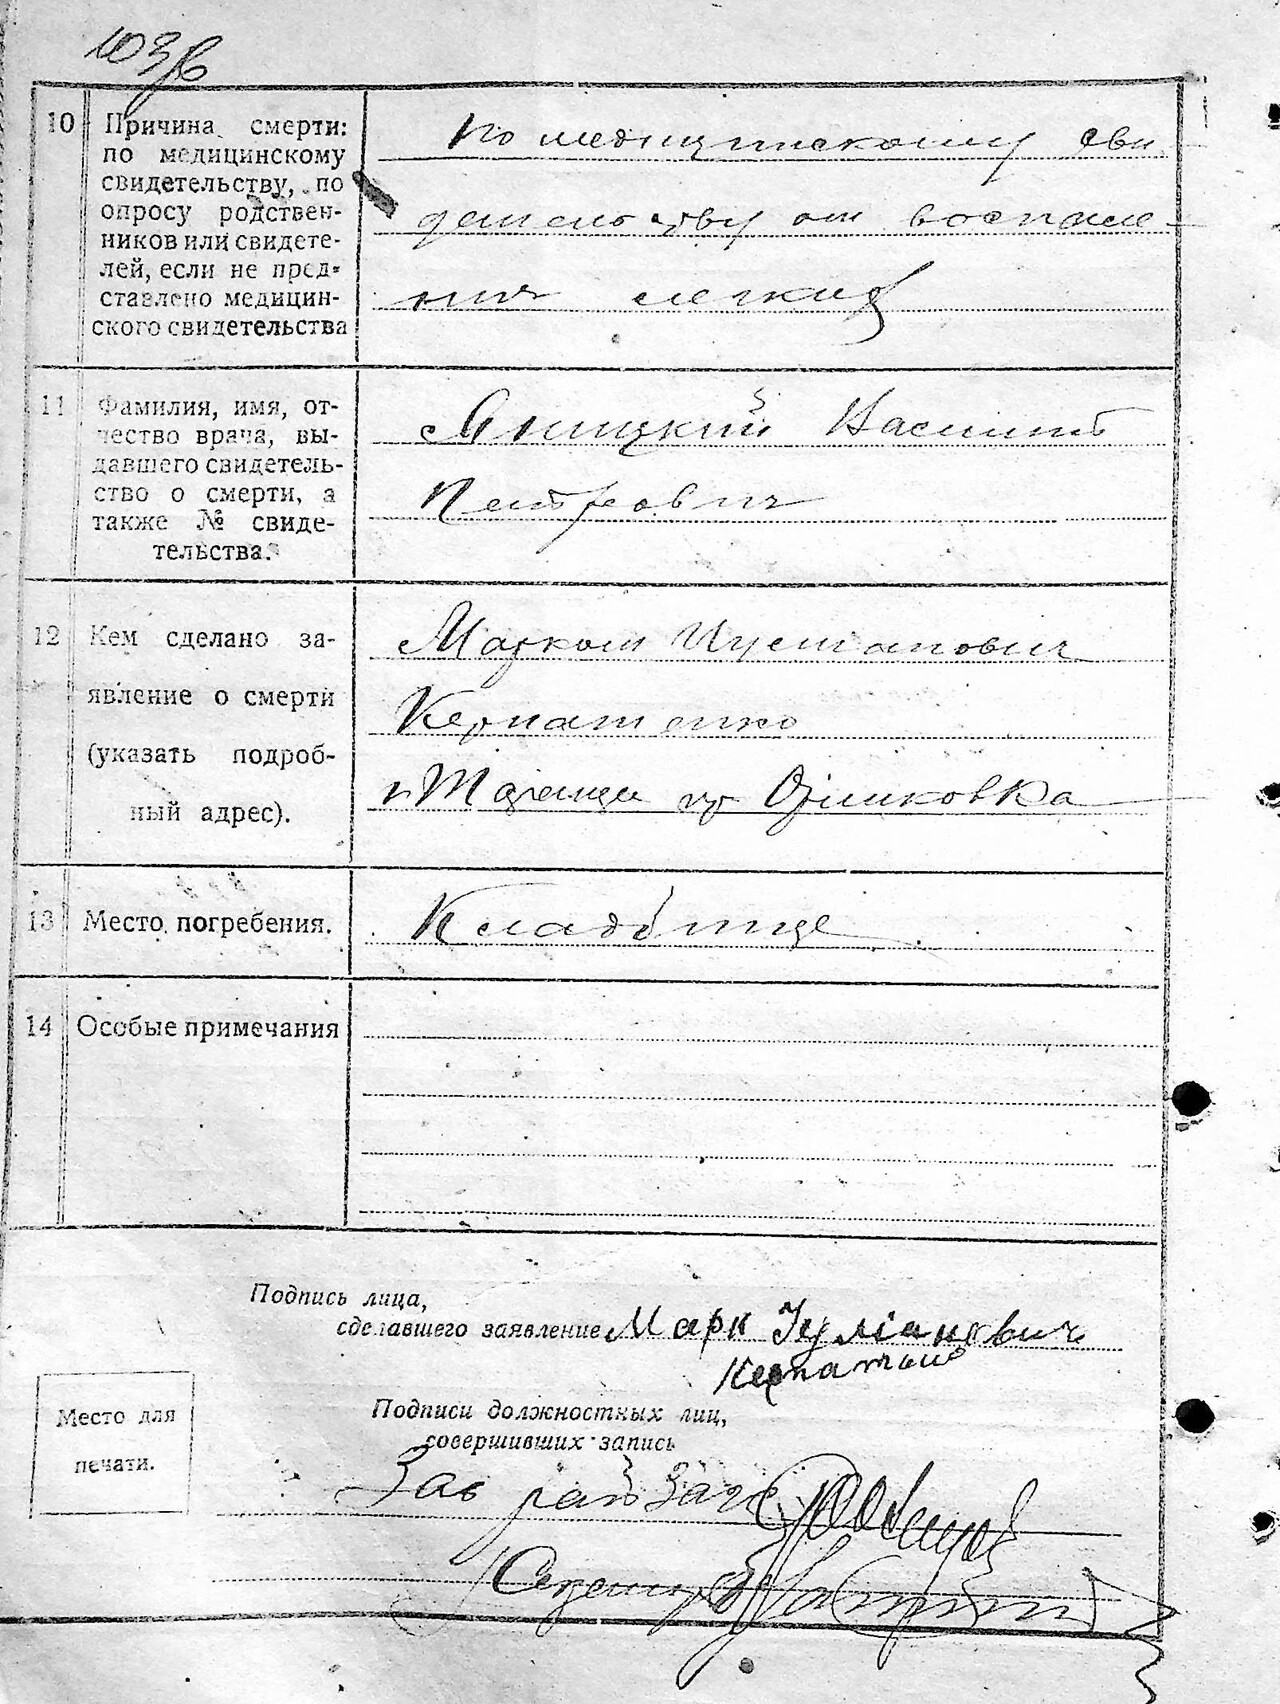 103
10 Причина смерти:
по медицинскому
свидетельству, по
опросу родствен-
ников или свидете-
лей, если не пред-
ставлено медицин-
ского свидетельства
По медицинскому сви
детельству от воспале
ния легких
11 Фамилия, имя, от-
чество врача, вы-
давшего свидетель-
ство о смерти, а
также № свиде-
тельства.
Яницкий Василий
Петрович
12 Кем сделано за-
явление о смерти
(указать подроб-
ный адрес).
Марком
13 Место погребения.
Кладбище
14 Особые примечания
Подпись лица,
сделавшего заявление Марк
Подписи должностных лиц,
совершивших запись
Место для
печати.
Зав рай